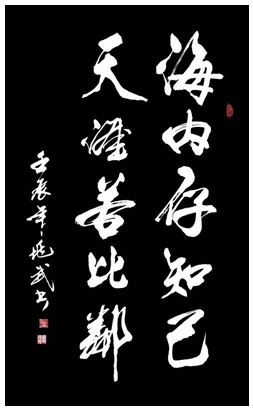 海内存知己
天涯若比鄰
壬辰年 武书